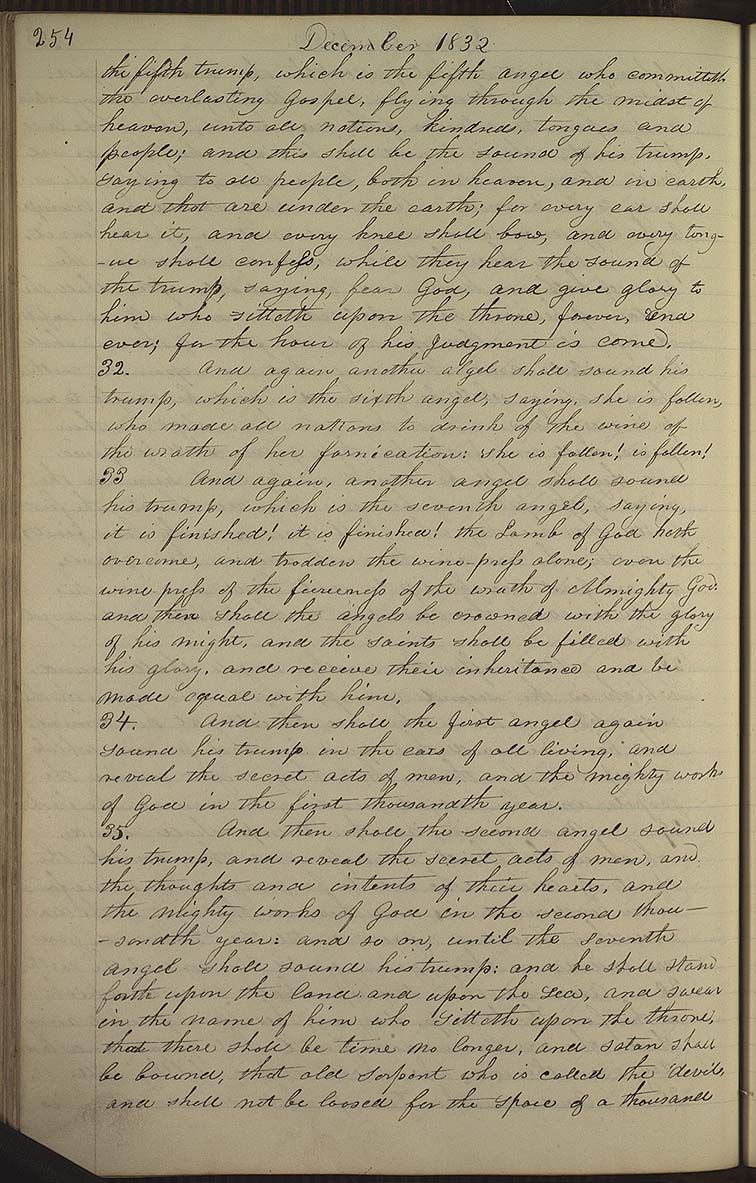 254
December 1832
the fifth trump, which is the fifth angel who committeth
the everlasting Gospel, flying through the midst of
heaven, unto all nations, kindreds, tongues and
people; and this shall be the sound of his trump,
saying to all people, both in heaven, and in earth,
and that are under the earth; for every ear shall
hear it, and every knee shall bow, and every tong-
-ue shall confess, while they hear the sound of
the trump, saying, fear God, and give glory to
him who sitteth upon the throne, forever, and
ever; for the hour of his Judgment is come.
32. And again another a'gel shall sound his
trump, which is the sixth angel, saying, she is fallen,
who made all nations to drink of the wine of
the wrath of her fornication: she is fallen! is fallen!
33 And again, another angel shall sound
his trump, which is the seventh angel, saying,
it is finished! it is finished! the Lamb of God hath
overcome, and trodden the wine-press alone; even the
wine press of the fierceness of the wrath of Almighty God:
and then shall the angels be crowned with the glory
of his might, and the saints shall be filled with
his glory, and receive their inheritance and be
made equal with him.
34. And then shall the first angel again
sound his trump in the ears of all living, and
reveal the secret acts of men, and the mighty works
of God in the first thousandth year.
35. And then shall the second angel sound
his trump, and reveal the secret acts of men, and
the thoughts and intents of their hearts, and
the mighty works of God in the second thou-
-sandth year: and so on, until the seventh
angel shall sound his trump: and he shall stand
forth upon the land and upon the sea, and swear
in the name of him who sitteth upon the throne,
that there shall be time no longer, and satan shall
be bound, that old serpent who is called the devil,
and shall not be loosed for the space of a thousand